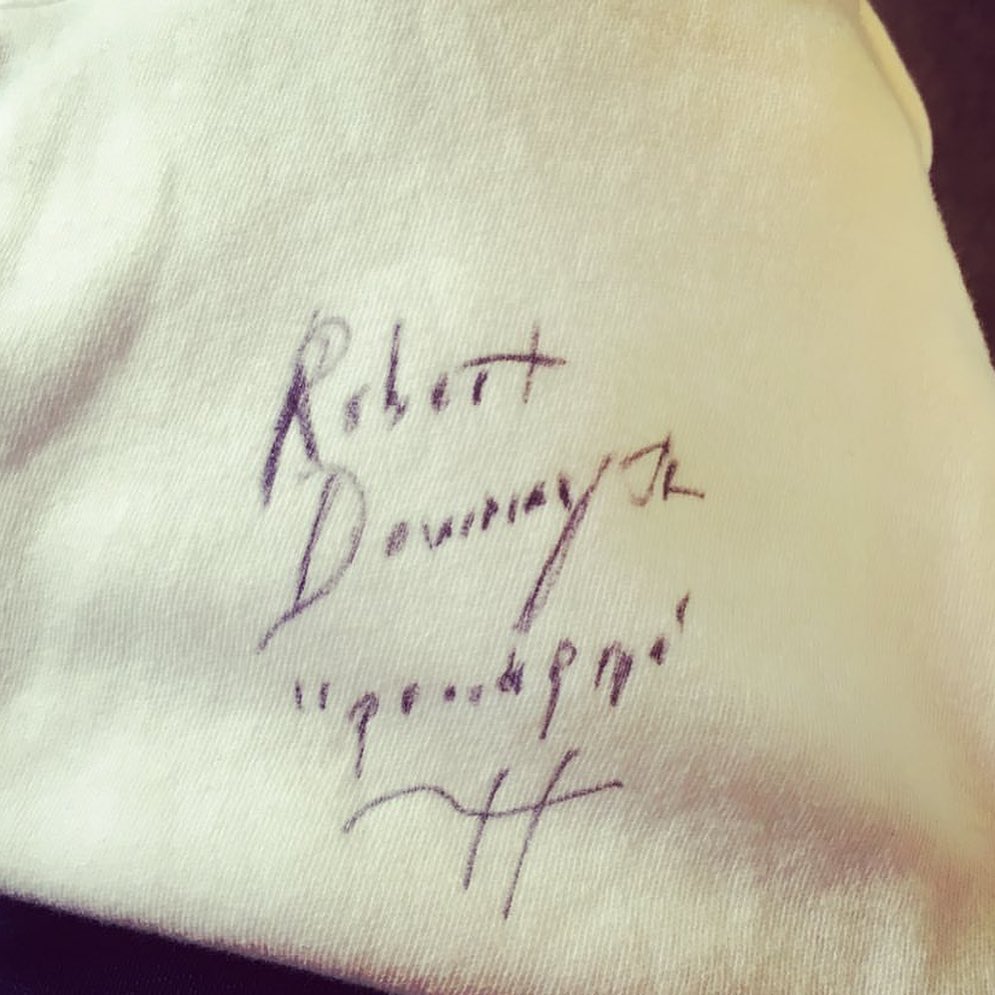 Robert
Downey Jr